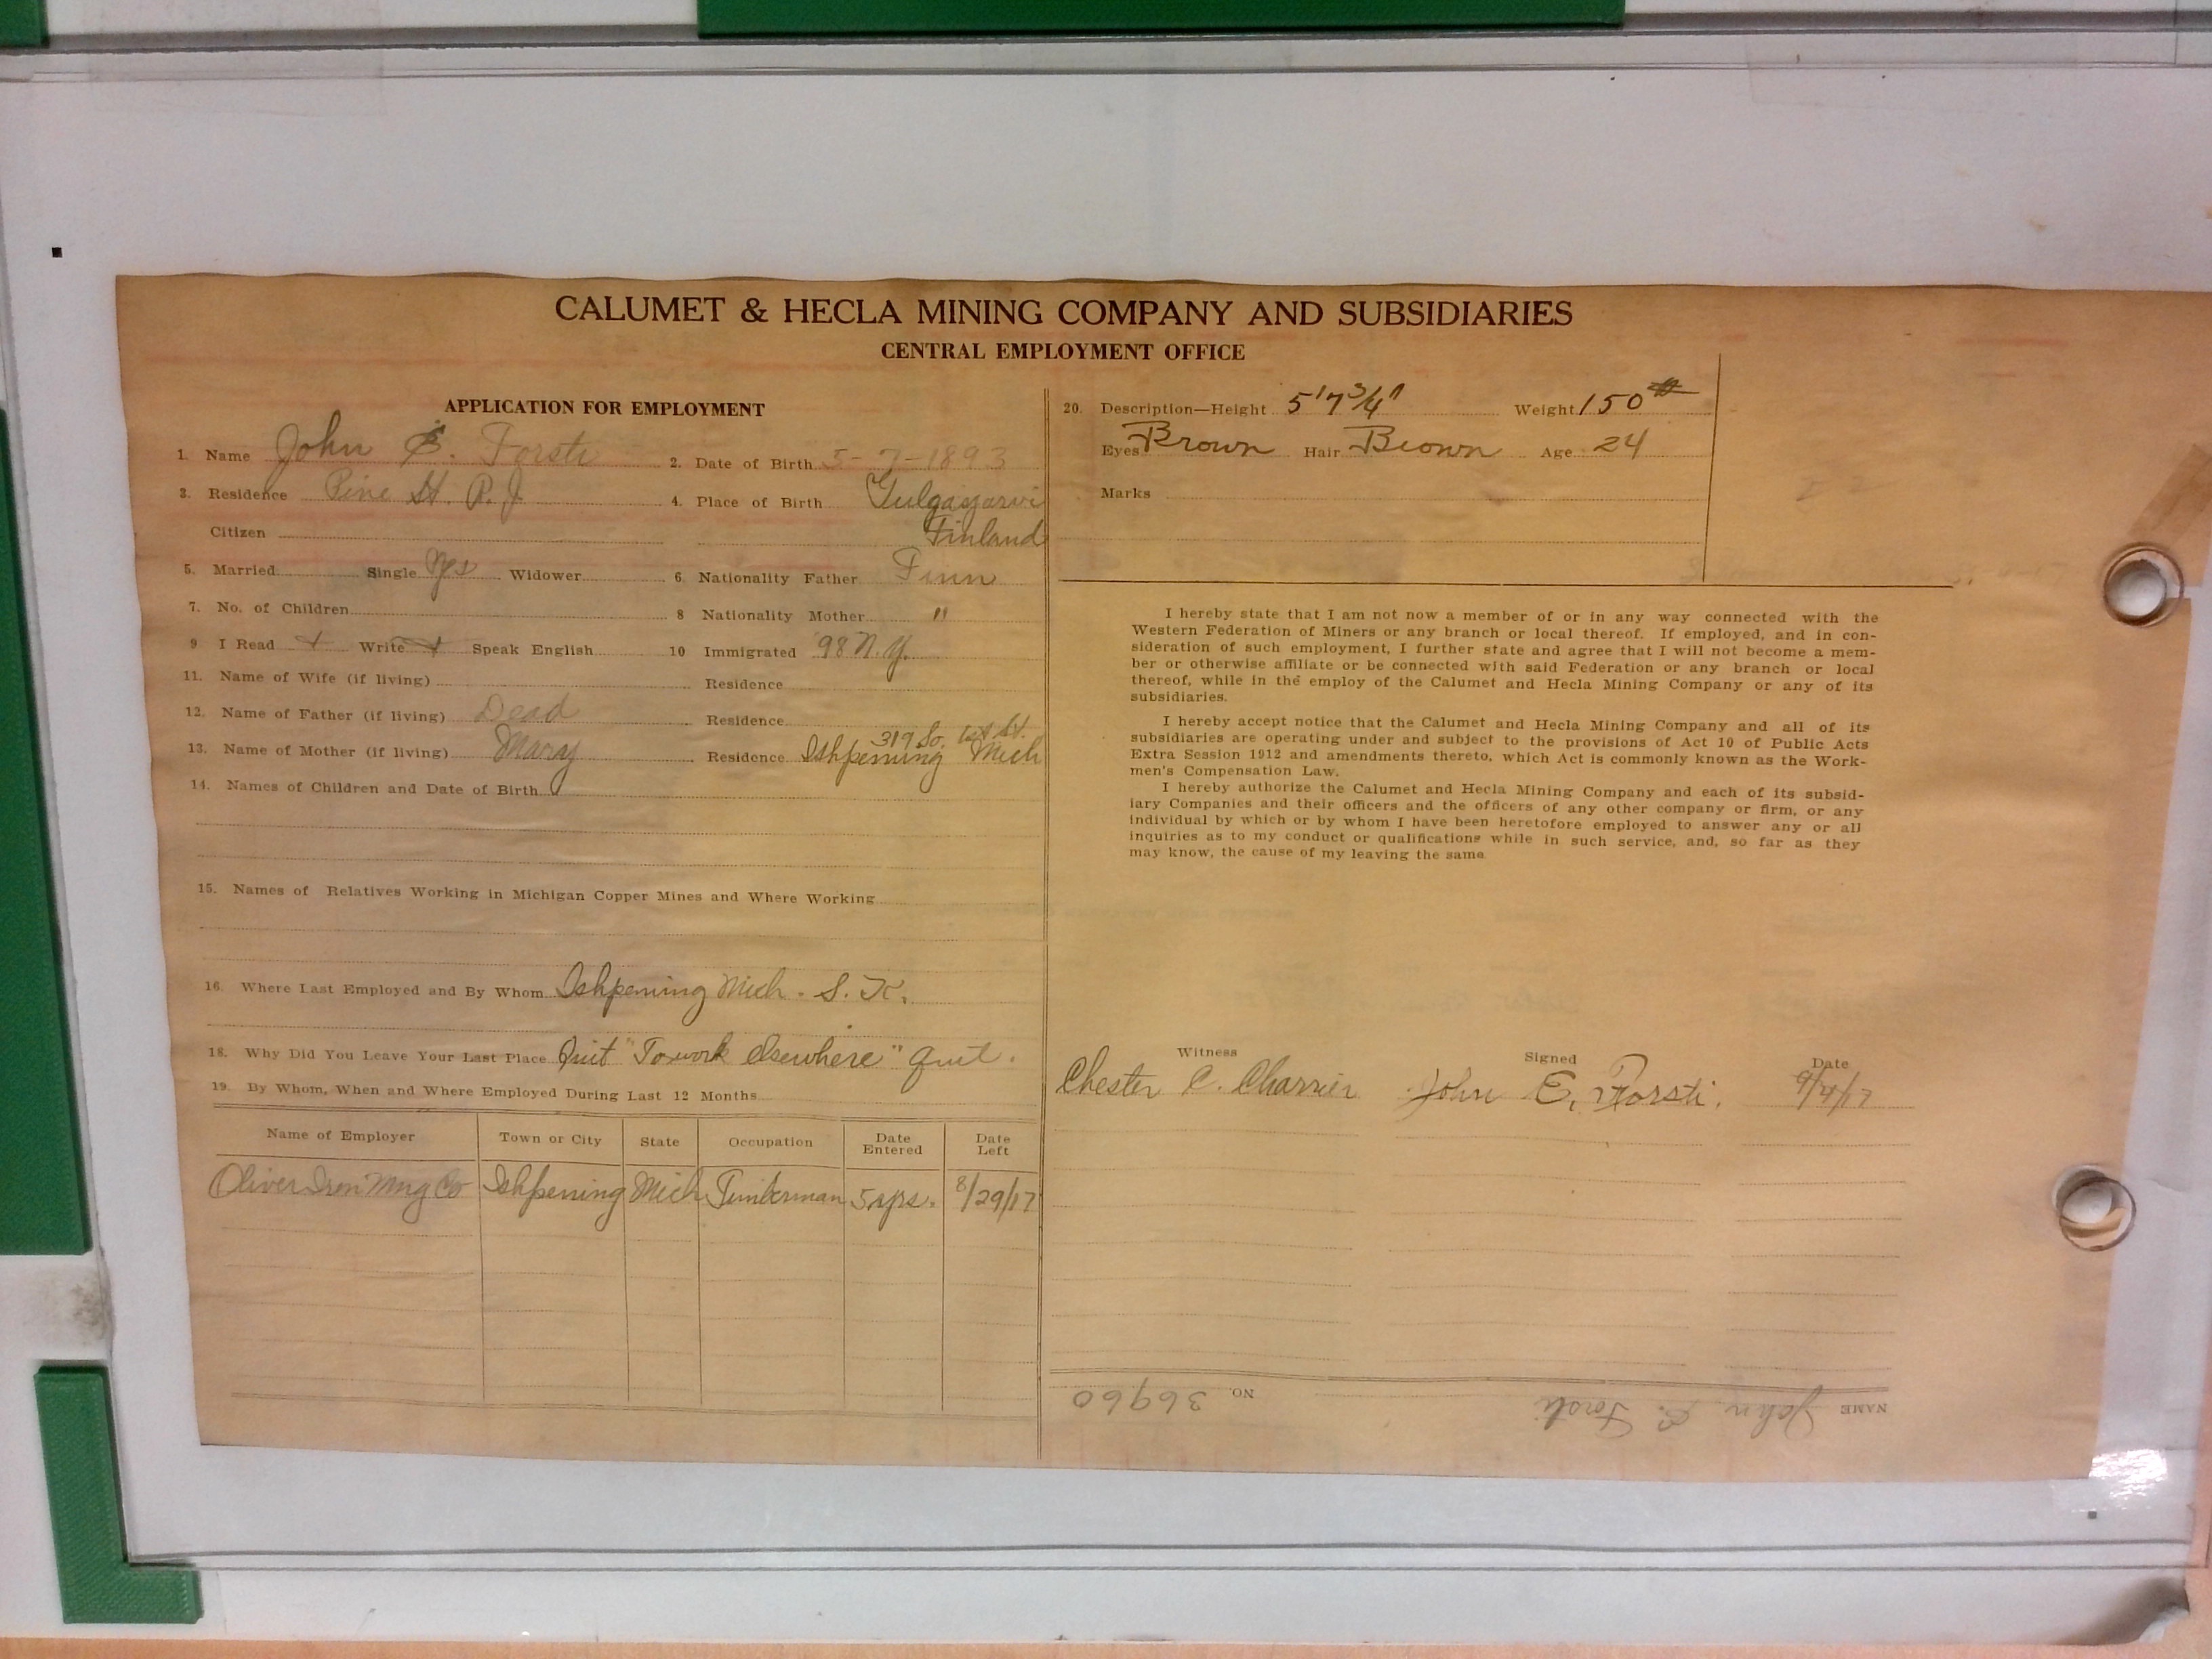 CALUMET & HECLA MINING COMPANY AND SUBSIDIARIES
CENTRAL EMPLOYMENT OFFICE
APPLICATION FOR EMPLOYMENT
1. Name John E. Forsti 2. Date of Birth 5-7-1893
3. Residence Pine St. R.J. 4. Place of Birth
Citizen Finland
5. Married Single Yes Widower 6. Nationality Father Finn
7. No. of Children 8 Nationality Mother "
9 I Read + Write + Speak English 10 Immigrated '98 N.Y.
11. Name of Wife (if living) Residence
12. Name of Father (if living) Dead Residence
319 So. 1st St.
13. Name of Mother (if living) Mary Residence Ishpeming Mich
14. Names of Children and Date of Birth
15. Names of Relatives Working in Michigan Copper Mines and Where Working
16. Where Last Employed and By Whom Ishpeming Mich. S. K.
18. Why Did You Leave Your Last Place Quit "To work elsewhere" quit.
19. By Whom, When and Where Employed During Last 12 Months
Name of Employer Town or City State Occupation Date Entered Date Left
Oliver Iron Mng Co Ishpeming Mich Timberman 5 yrs. 8/29/17
20. Description—Height 5'7 3/4" Weight 150#
Eyes Brown Hair Brown Age 24
Marks
I hereby state that I am not now a member of or in any way connected with the
Western Federation of Miners or any branch or local thereof. If employed, and in con-
sideration of such employment, I further state and agree that I will not become a mem-
ber or otherwise affiliate or be connected with said Federation or any branch or local
thereof, while in the employ of the Calumet and Hecla Mining Company or any of its
subsidiaries.
I hereby accept notice that the Calumet and Hecla Mining Company and all of its
subsidiaries are operating under and subject to the provisions of Act 10 of Public Acts
Extra Session 1912 and amendments thereto, which Act is commonly known as the Work-
men's Compensation Law.
I hereby authorize the Calumet and Hecla Mining Company and each of its subsid-
iary Companies and their officers and the officers of any other company or firm, or any
individual by which or by whom I have been heretofore employed to answer any or all
inquiries as to my conduct or qualifications while in such service, and, so far as they
may know, the cause of my leaving the same
Witness Signed Date
Chester C. Charrier John E. Forsti. 9/4/17
NAME John E. Forsti NO. 36960